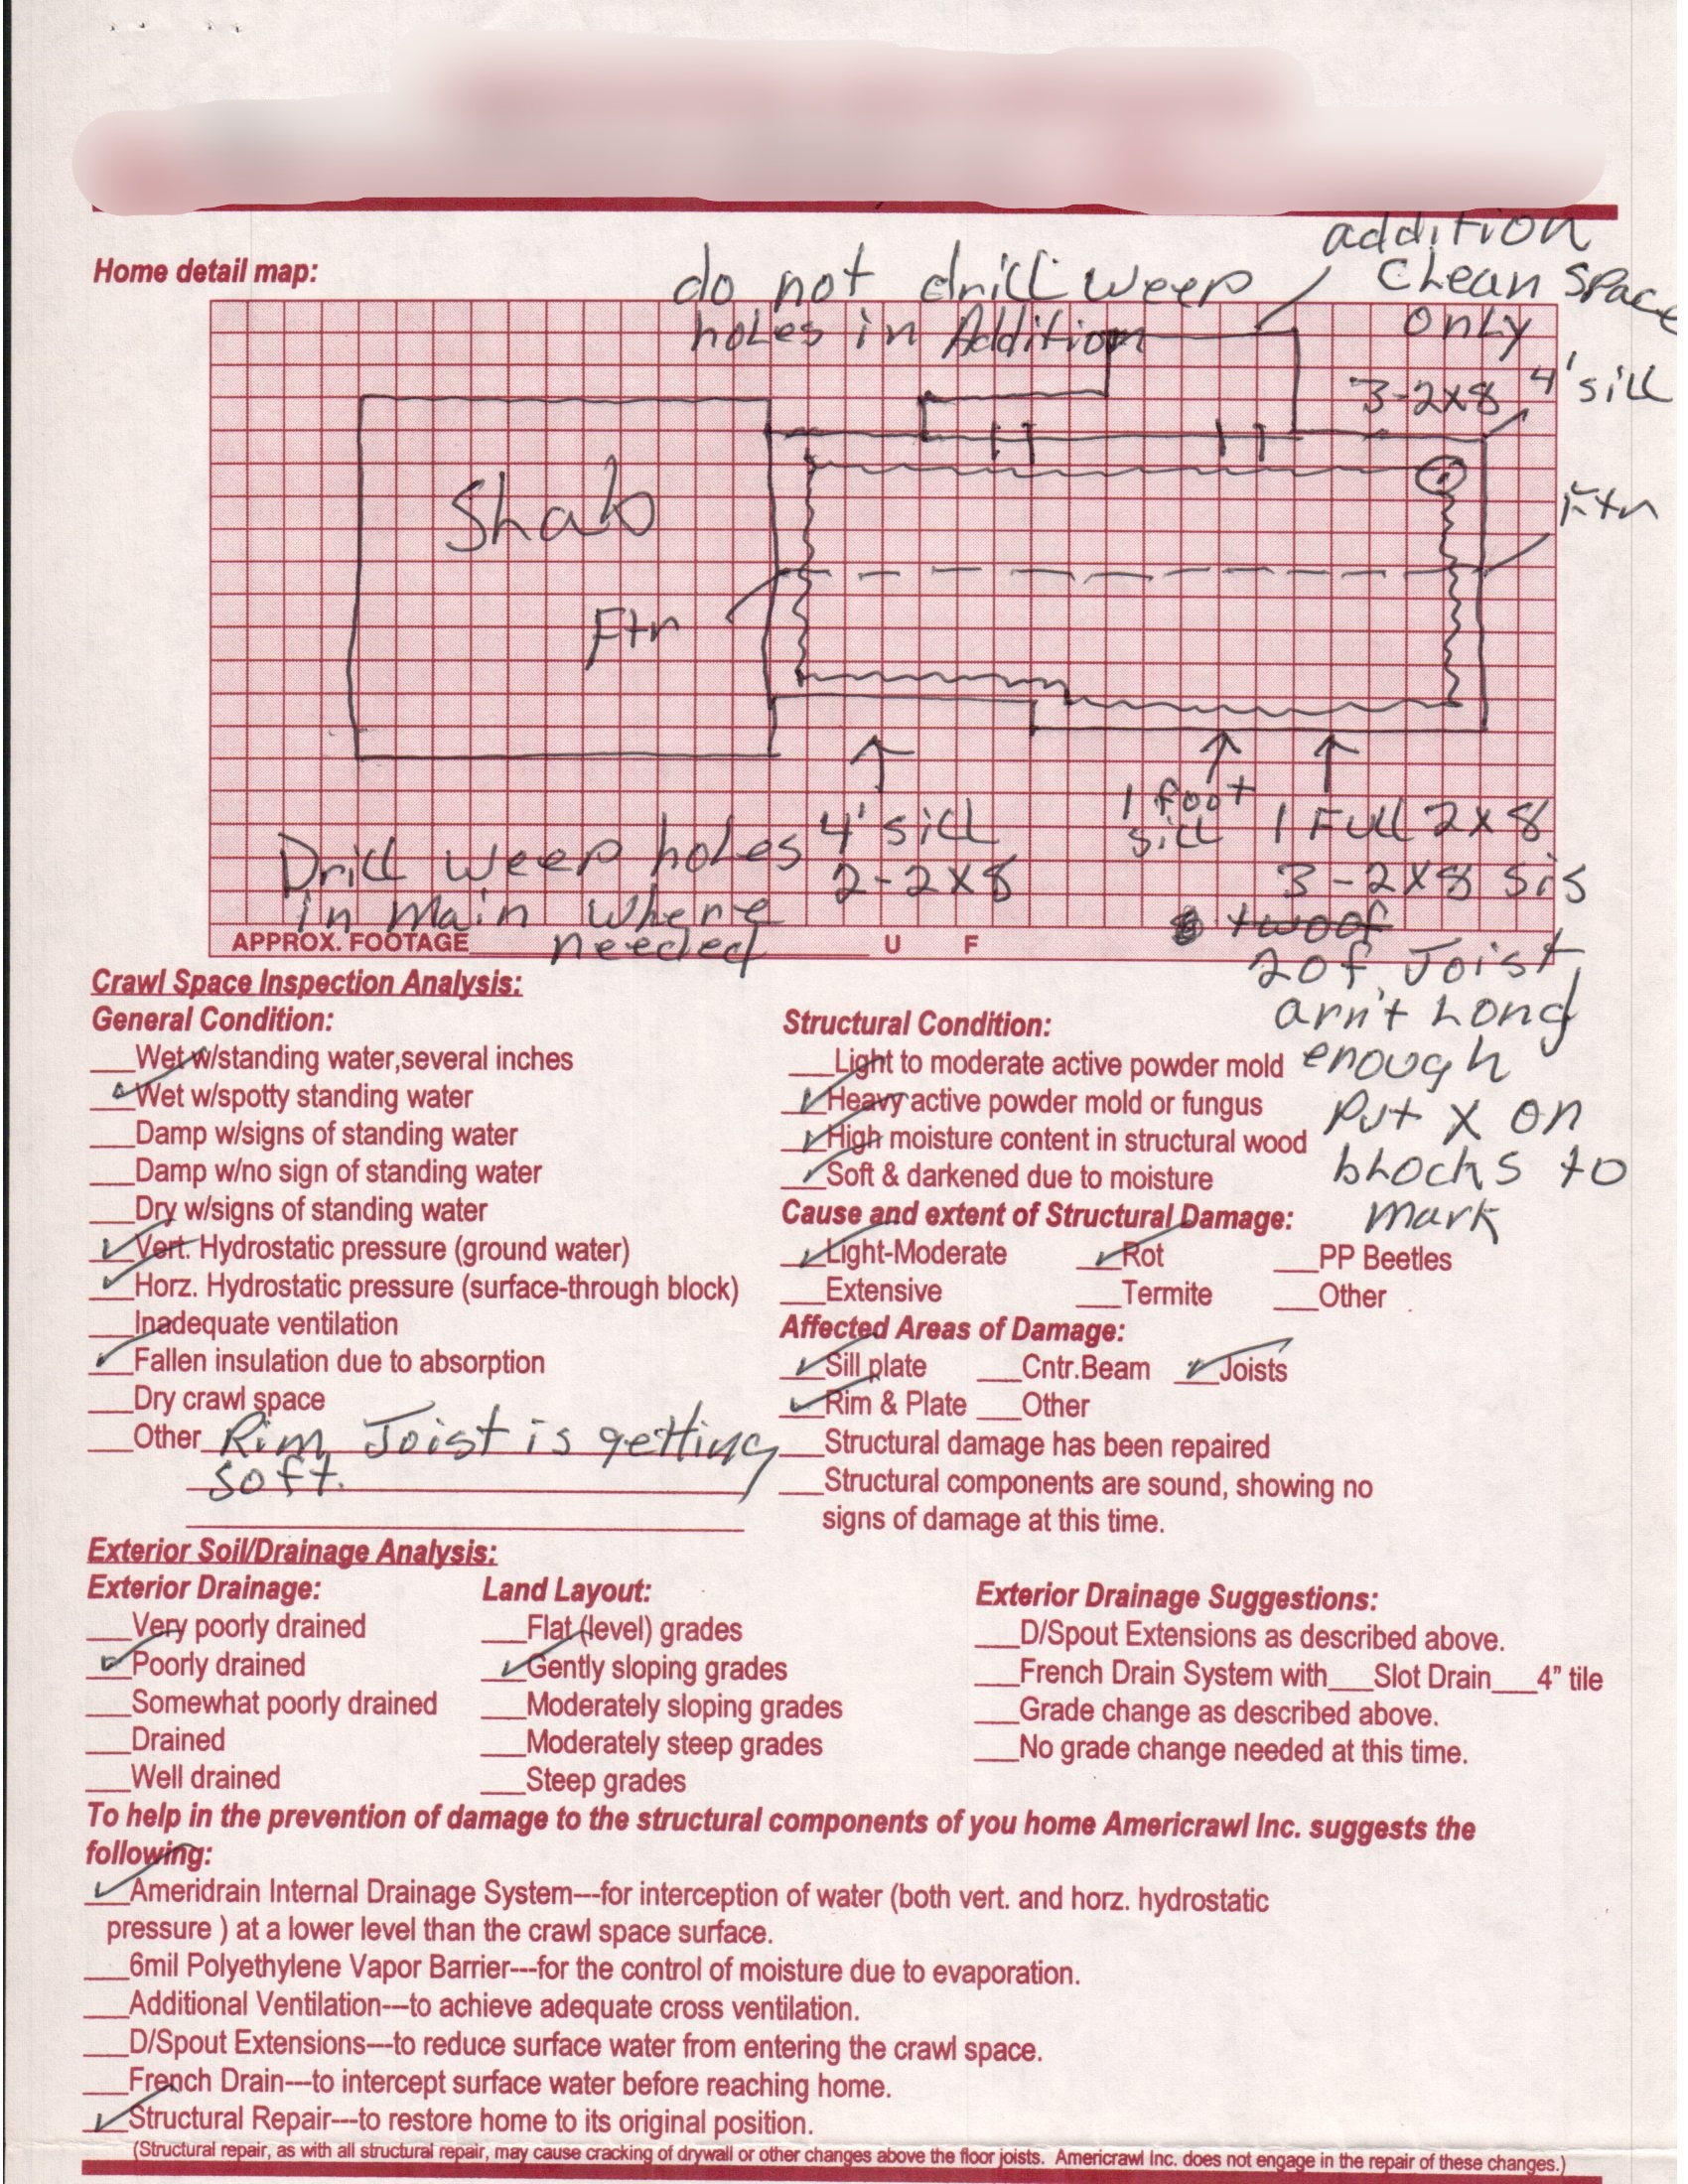 addition
do not drill weep
cLean space
Home detail map:
holes in Addition
onLy
4' sill
3-2x8
SLab
Ftn
Ftn
4' sill
2-2x8
1 foot
sill
1 FuLL 2x8
3-2x8 sis
Drill weep hoLes
in main where
needed
APPROX. FOOTAGE U F
2 of Joist
arn't Long
enough
Put X on
bLocks to
mark
Crawl Space Inspection Analysis:
General Condition:
Wet w/standing water,several inches
Wet w/spotty standing water
Damp w/signs of standing water
Damp w/no sign of standing water
Dry w/signs of standing water
Vert. Hydrostatic pressure (ground water)
Horz. Hydrostatic pressure (surface-through block)
Inadequate ventilation
Fallen insulation due to absorption
Dry crawl space
Other Rim Joist is getting
soft.
Structural Condition:
Light to moderate active powder mold
Heavy active powder mold or fungus
High moisture content in structural wood
Soft & darkened due to moisture
Cause and extent of Structural Damage:
Light-Moderate Rot PP Beetles
Extensive Termite Other
Affected Areas of Damage:
Sill plate Cntr.Beam Joists
Rim & Plate Other
Structural damage has been repaired
Structural components are sound, showing no
signs of damage at this time.
Exterior Soil/Drainage Analysis:
Exterior Drainage:
Very poorly drained
Poorly drained
Somewhat poorly drained
Drained
Well drained
Land Layout:
Flat (level) grades
Gently sloping grades
Moderately sloping grades
Moderately steep grades
Steep grades
Exterior Drainage Suggestions:
D/Spout Extensions as described above.
French Drain System with___Slot Drain___4" tile
Grade change as described above.
No grade change needed at this time.
To help in the prevention of damage to the structural components of you home Americrawl Inc. suggests the
following:
Ameridrain Internal Drainage System---for interception of water (both vert. and horz. hydrostatic
pressure ) at a lower level than the crawl space surface.
6mil Polyethylene Vapor Barrier---for the control of moisture due to evaporation.
Additional Ventilation---to achieve adequate cross ventilation.
D/Spout Extensions---to reduce surface water from entering the crawl space.
French Drain---to intercept surface water before reaching home.
Structural Repair---to restore home to its original position.
(Structural repair, as with all structural repair, may cause cracking of drywall or other changes above the floor joists. Americrawl Inc. does not engage in the repair of these changes.)